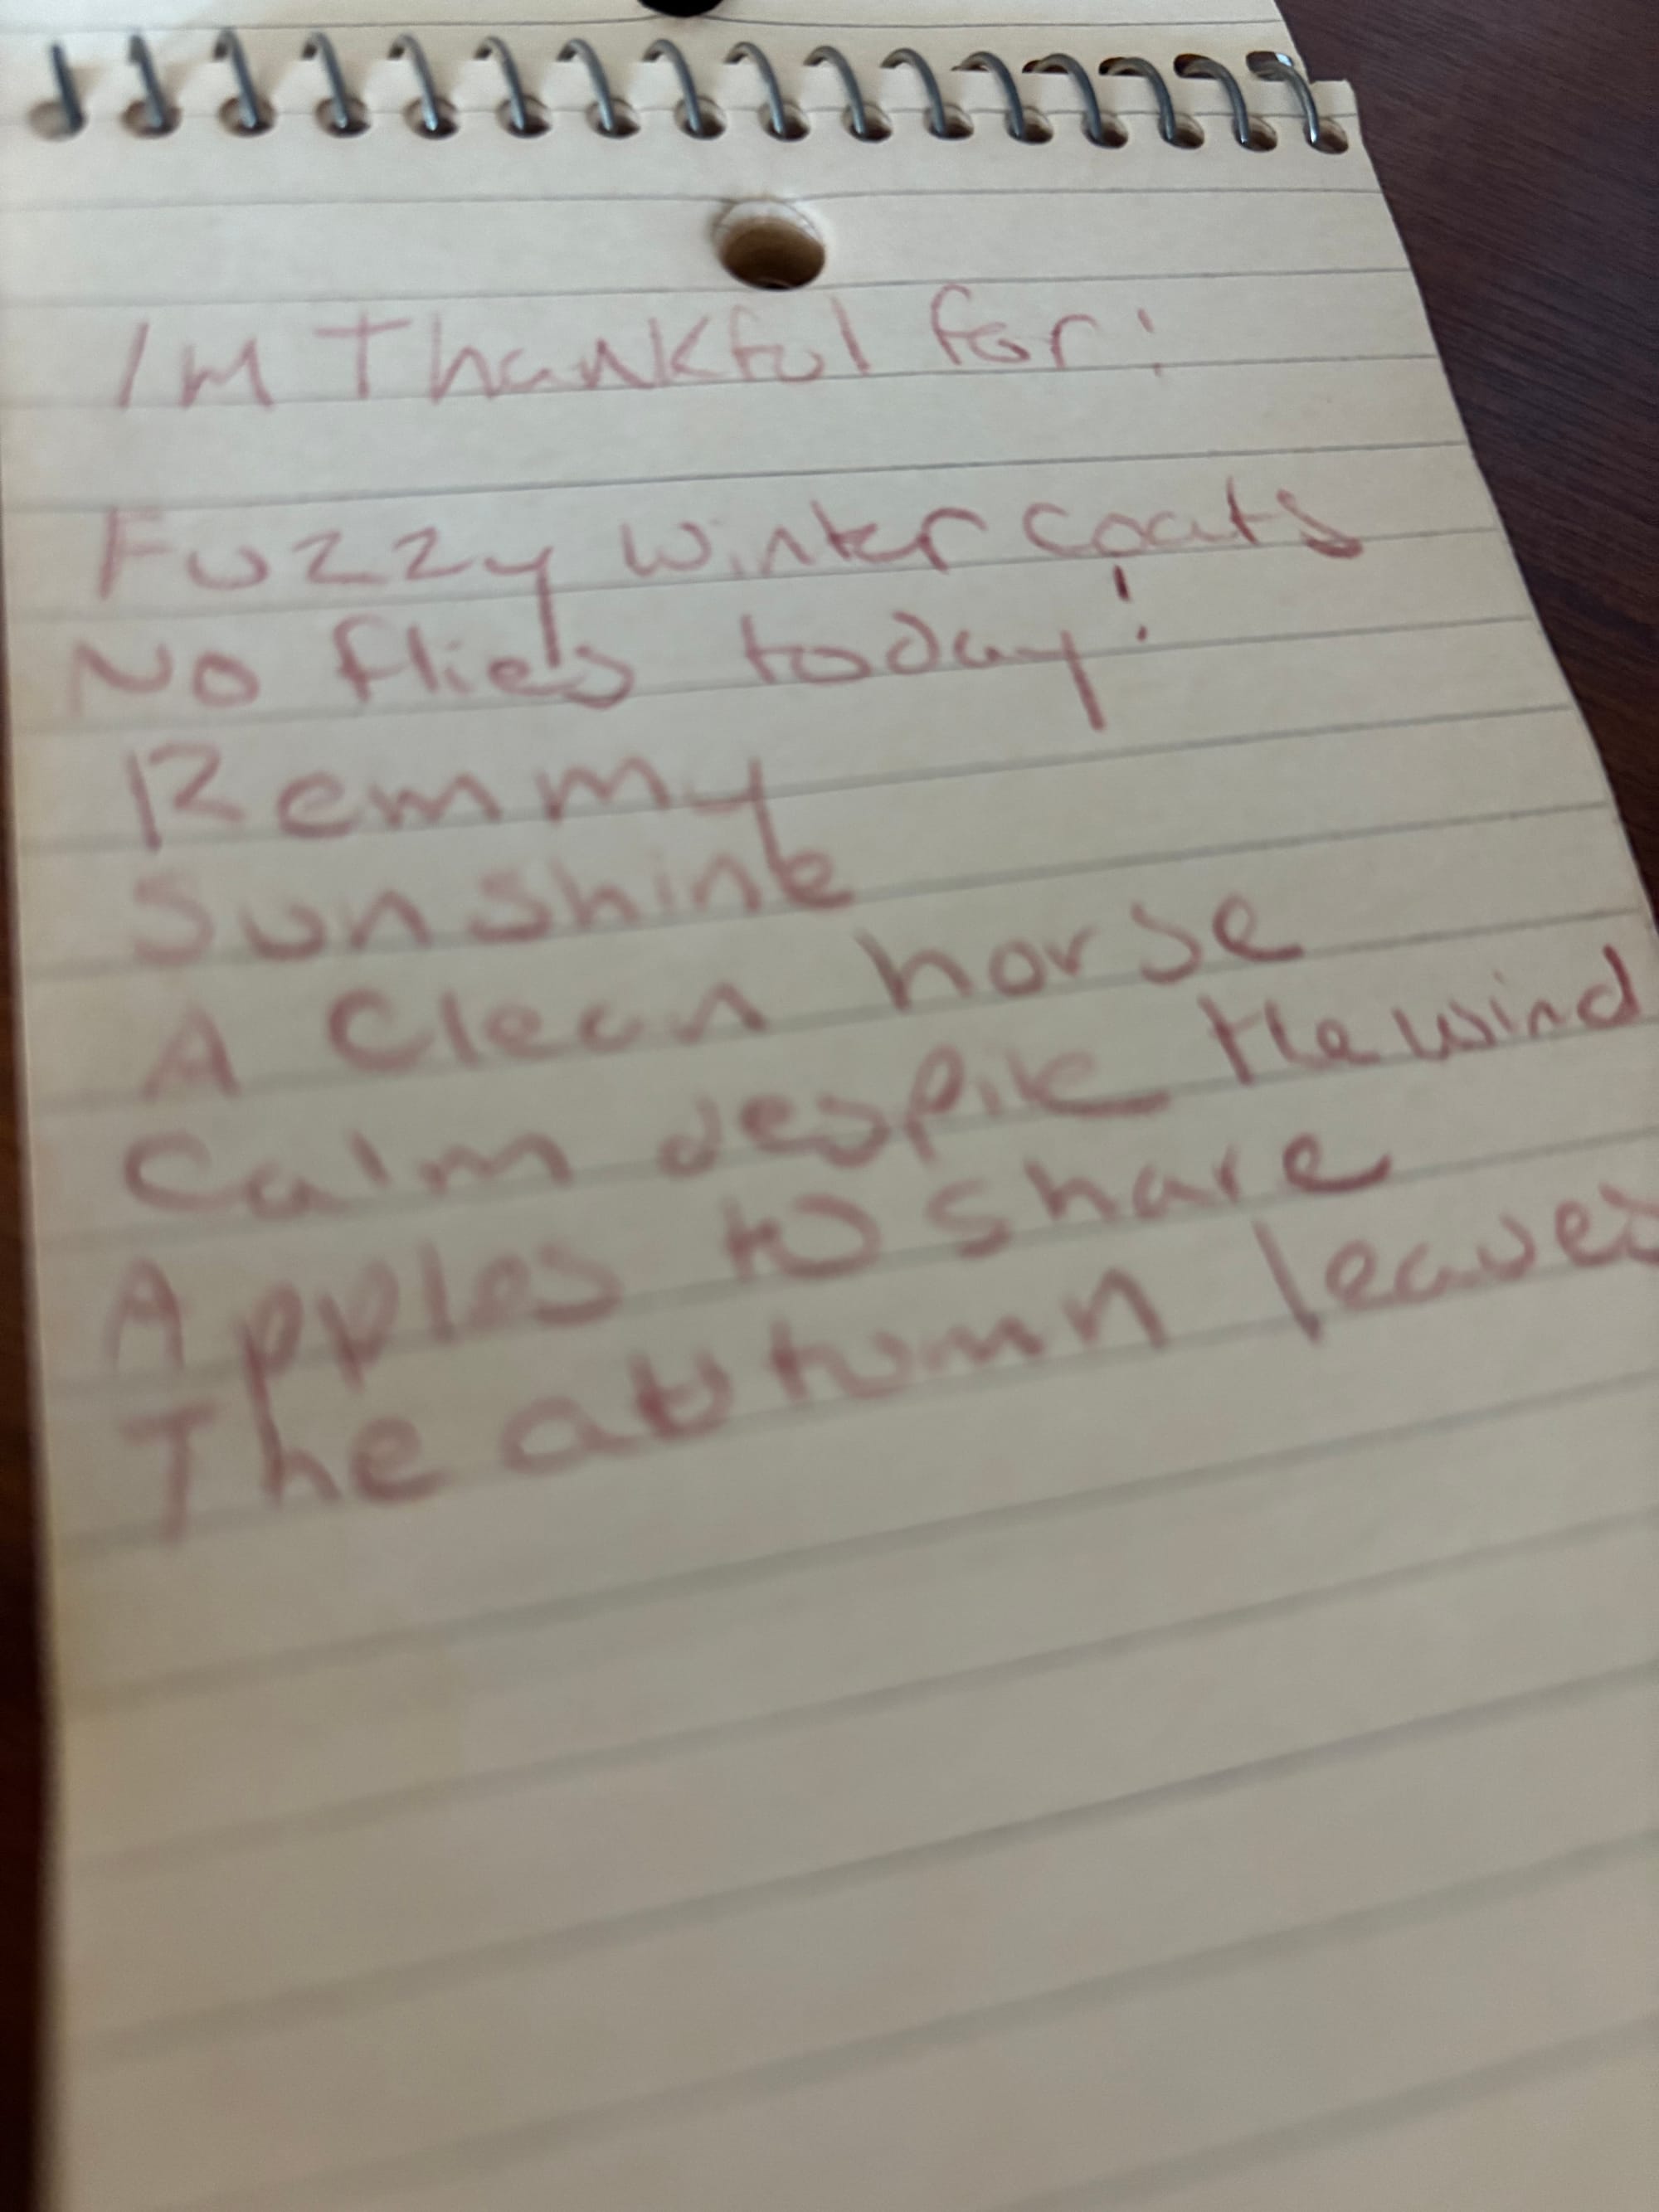 Im Thankful for:
Fuzzy winter coats
No flies today!
Remmy
Sunshine
A Clean horse
Calm despite the wind
Apples to share
The autumn leaves